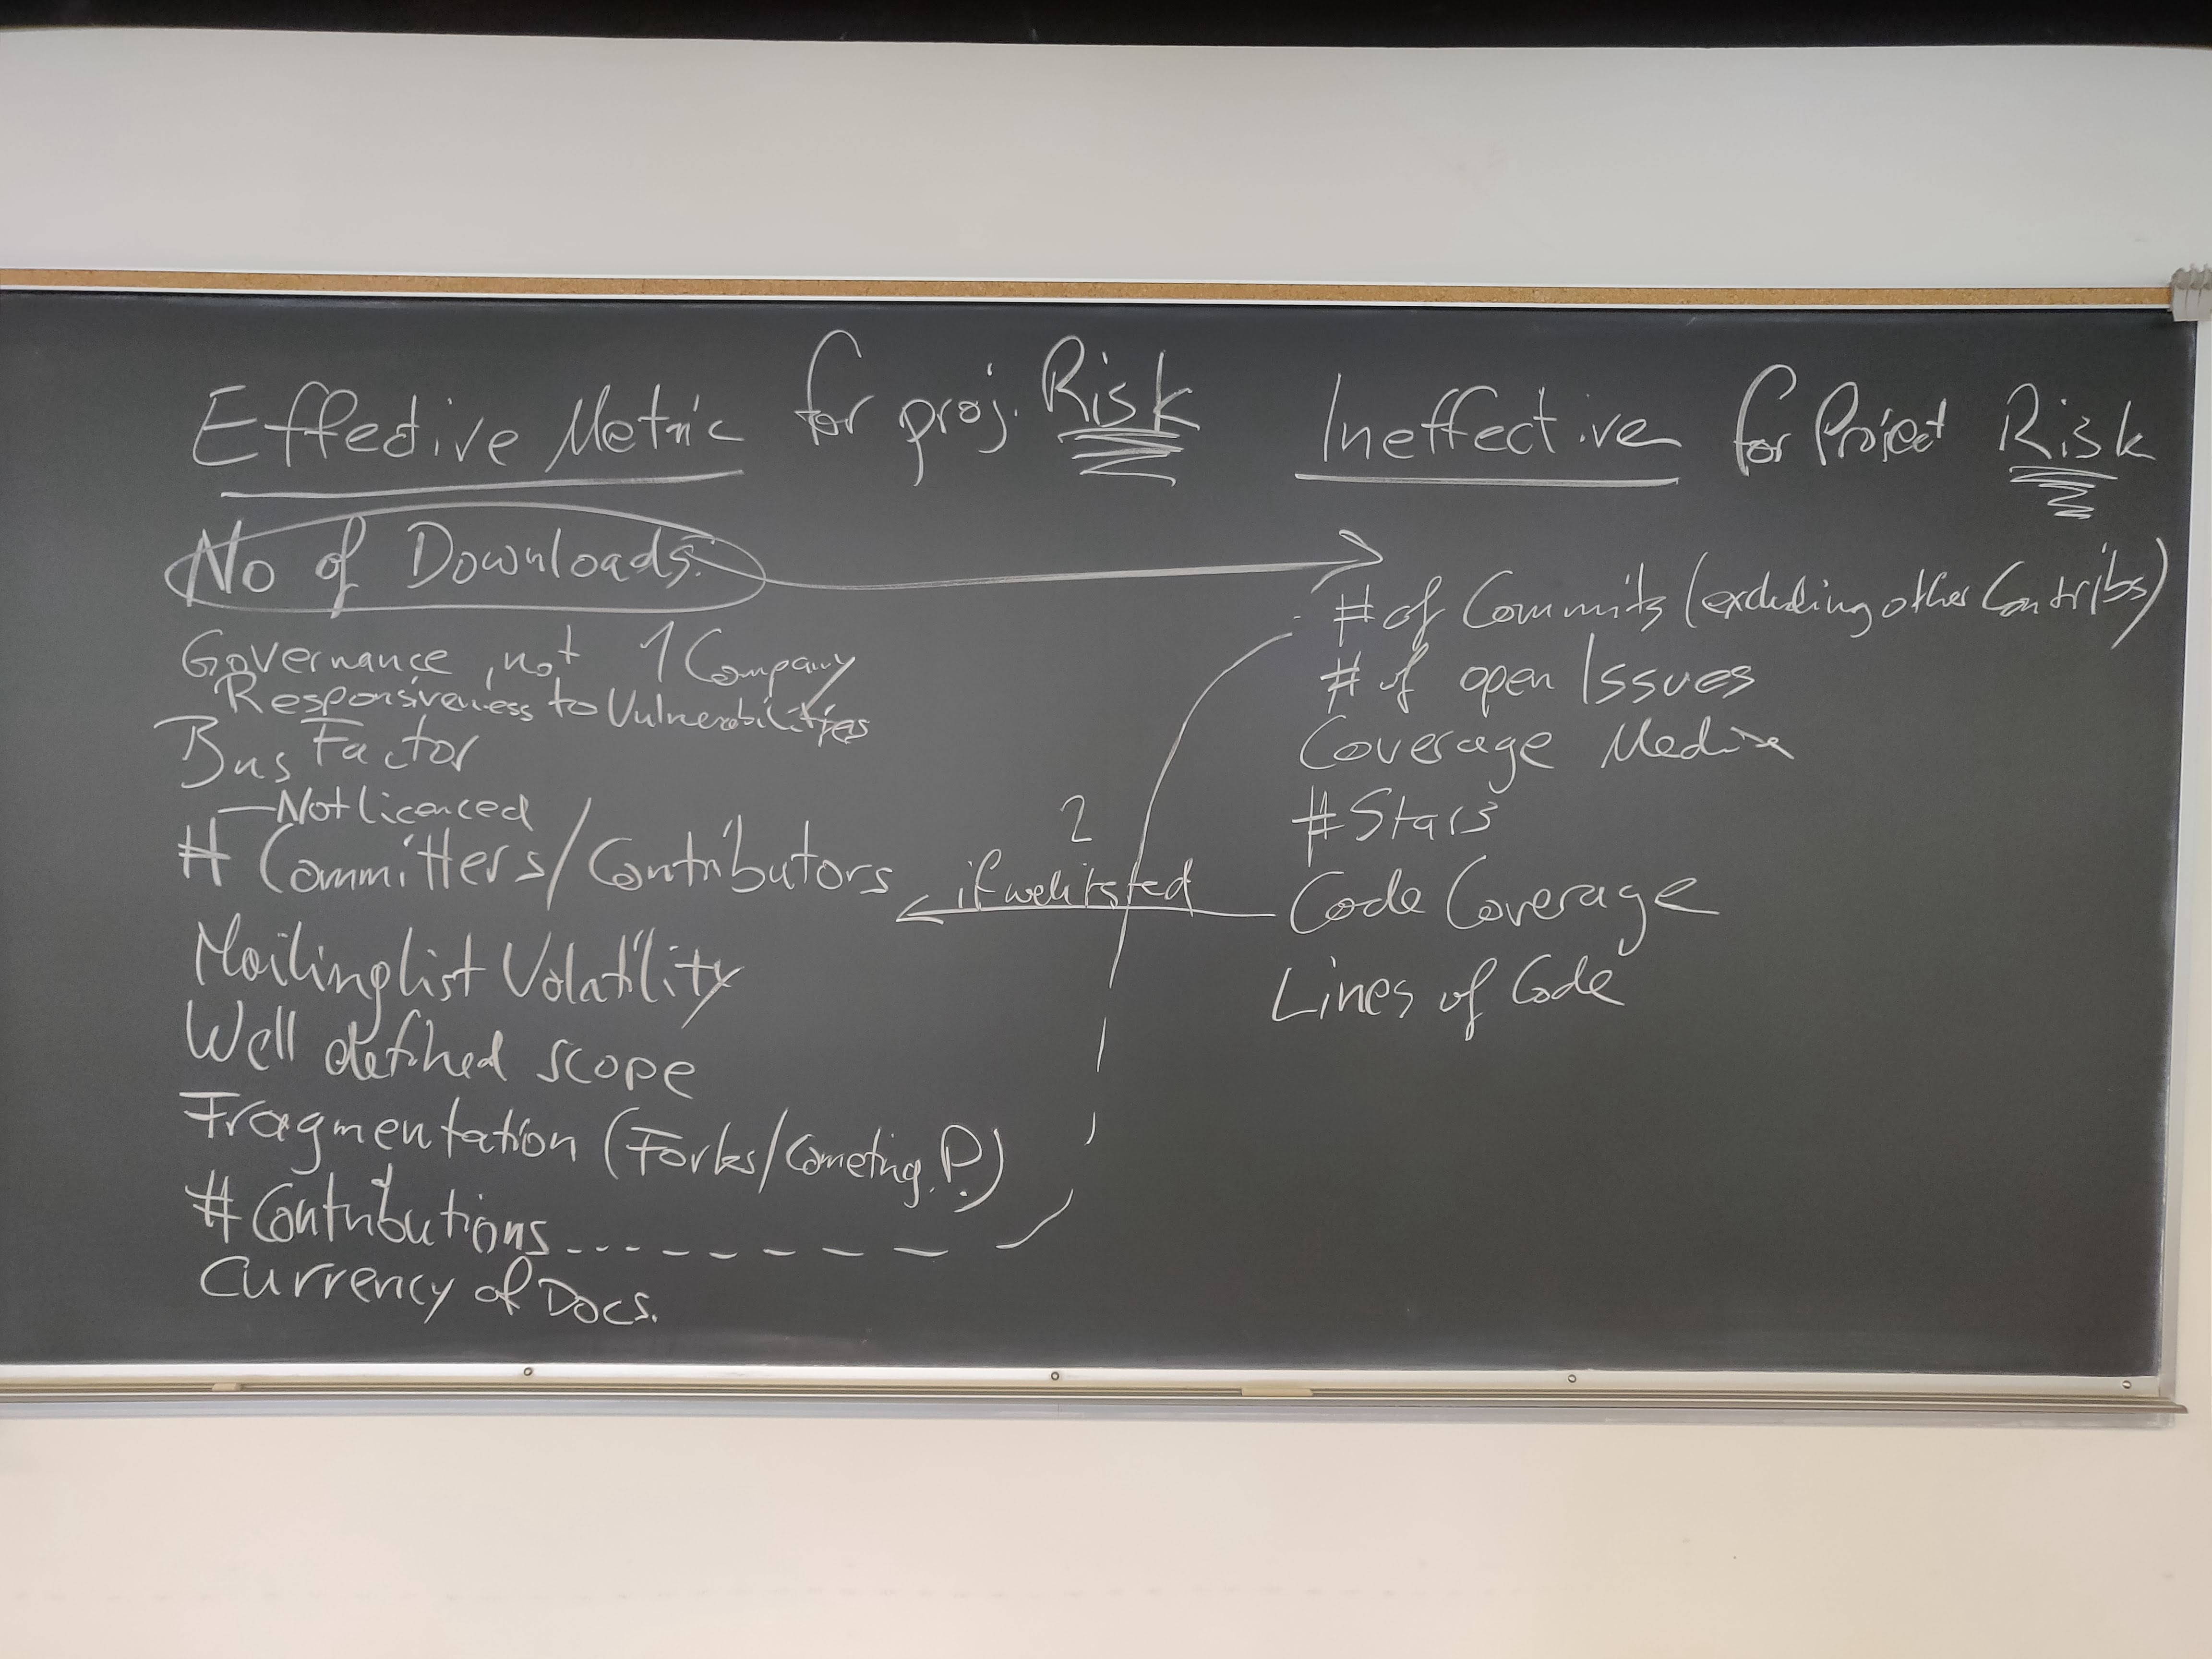 Effective Metric for proj. Risk
No of Downloads.
Governance, not 1 Company
Responsiveness to Vulnerabilities
Bus Factor
—Not licenced
# Committers/Contributors
Mailinglist Volatility
Well defined scope
Fragmentation (Forks/Cometing P.)
# Contributions
Currency of Docs.
2
if well tested
Ineffective for Project Risk
# of Commits (excluding other Contribs)
# of open Issues
Coverage Media
# Stars
Code Coverage
Lines of Code